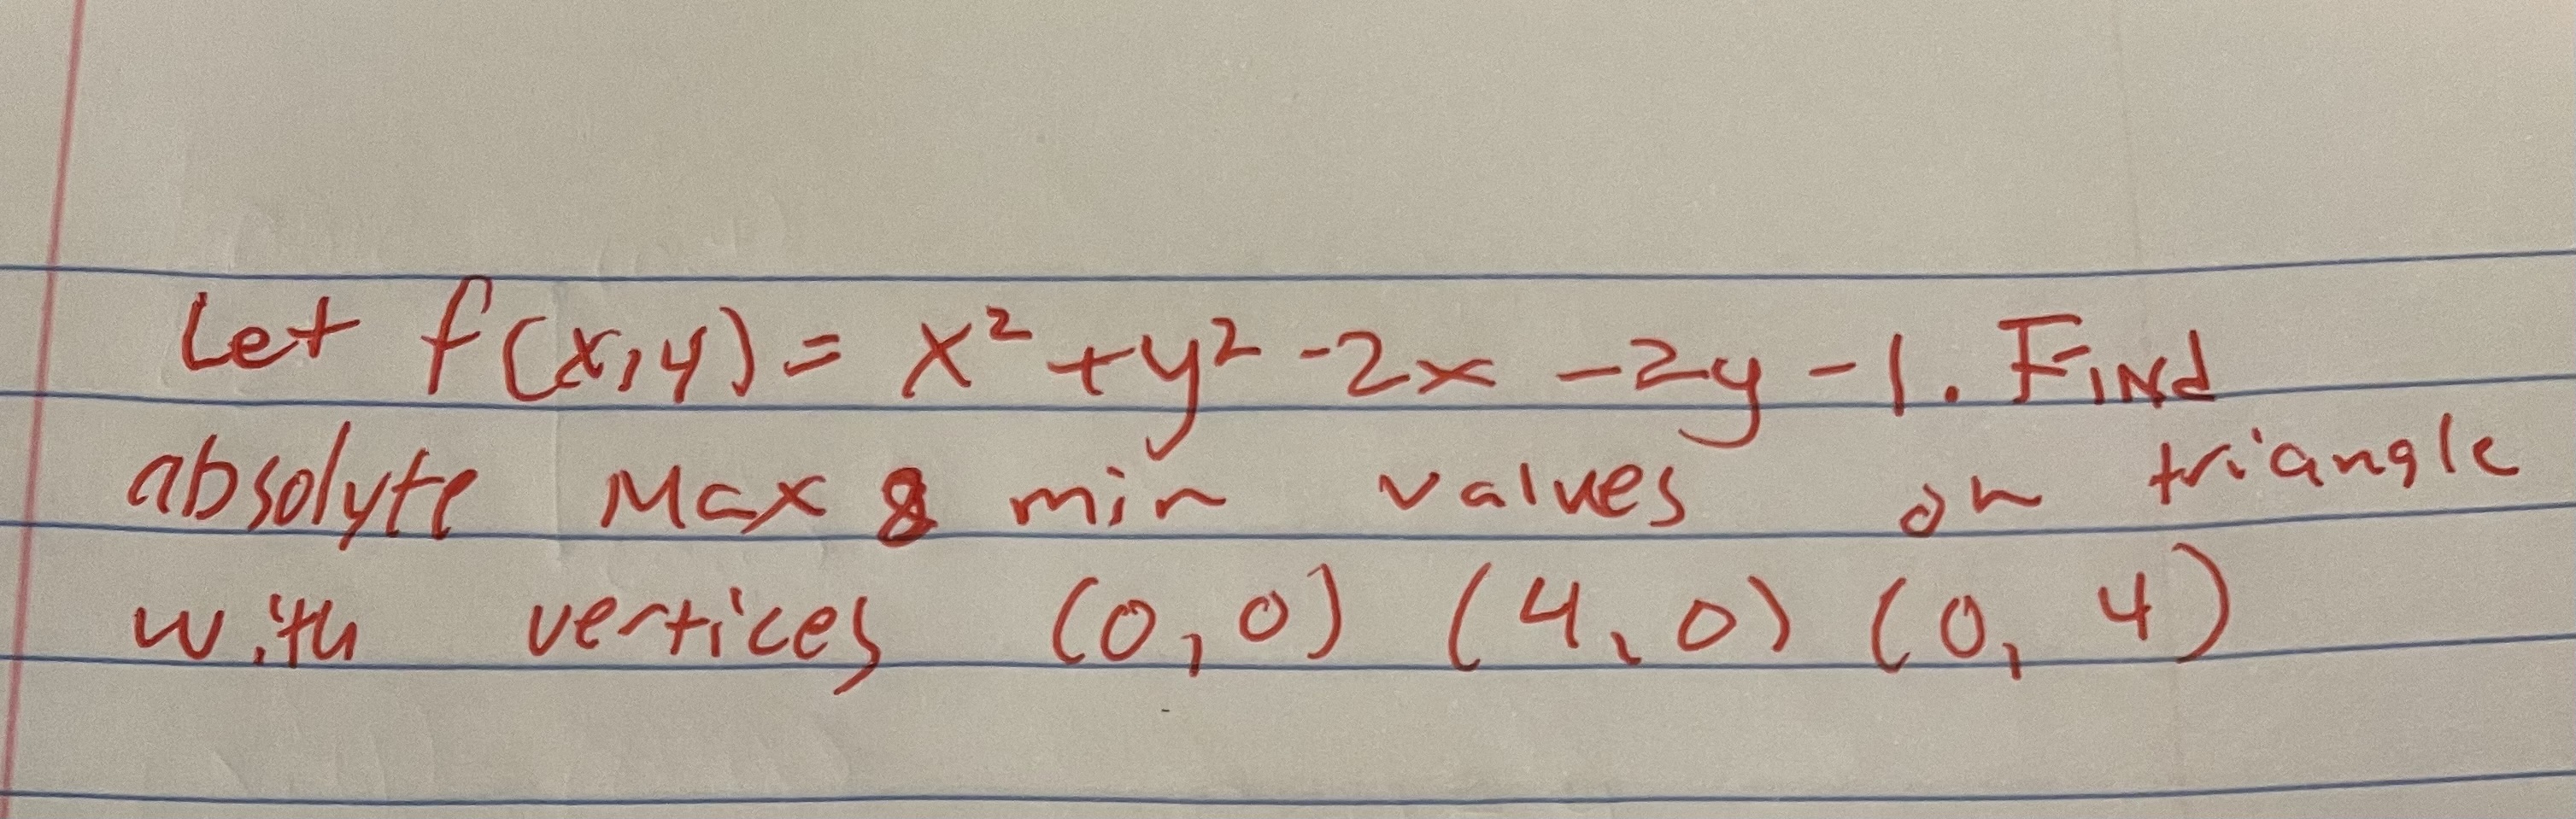 Let f(x,y) = x² + y² - 2x - 2y - 1. Find
absolyte Max & min values on triangle
with vertices (0,0) (4,0) (0,4)